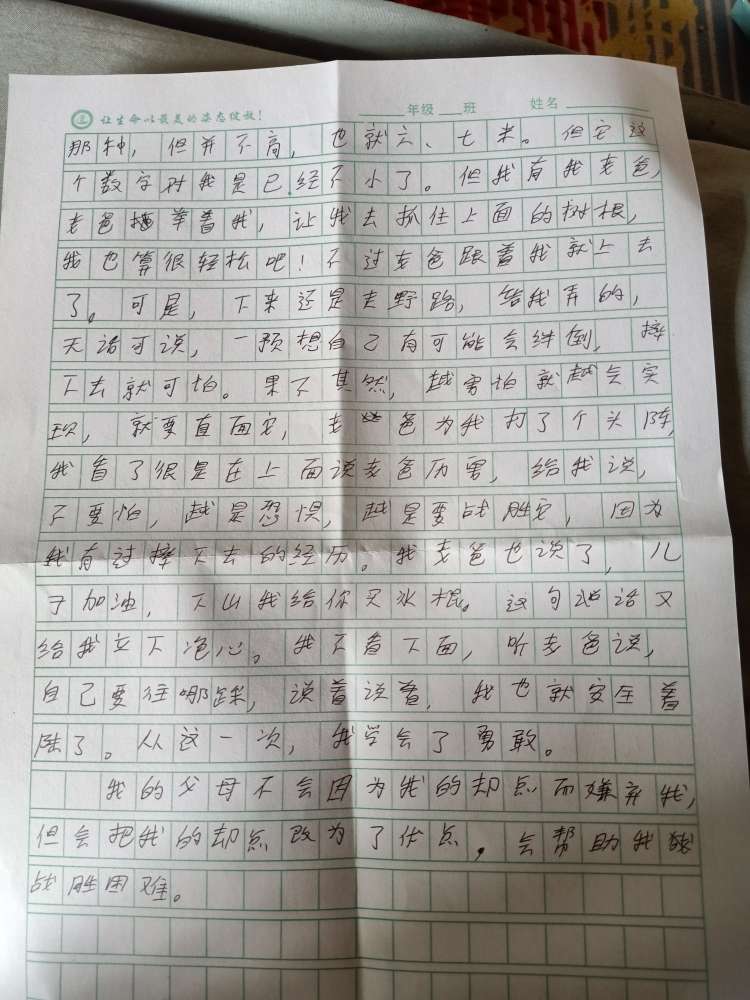 让生命以最美的姿态绽放！
年级 班 姓名
那种，但并不高，也就六、七米。但它这
个数字对我是已经不小了。但我有我老爸，
老爸举着我，让我去抓住上面的树根，
我也算很轻松吧！不过老爸跟着我就上去
了。可是，下来还是走野路，给我弄的，
无话可说，一预想自己有可能会绊倒，摔
下去就可怕。果不其然，越害怕就越会实
现，就要直面它，老爸为我打了个头阵，
我看了很是在上面说老爸厉害，给我说，
不要怕，越是恐惧，越是要战胜它，因为
我有过摔下去的经历。我老爸也说了，儿
子加油，下山我给你买冰棍。这句话又
给我立下决心。我不看下面，听老爸说，
自己要往哪踩，说着说着，我也就安全着
陆了。从这一次，我学会了勇敢。
我的父母不会因为我的却点而嫌弃我，
但会把我的却点改为了优点，会帮助我
战胜困难。